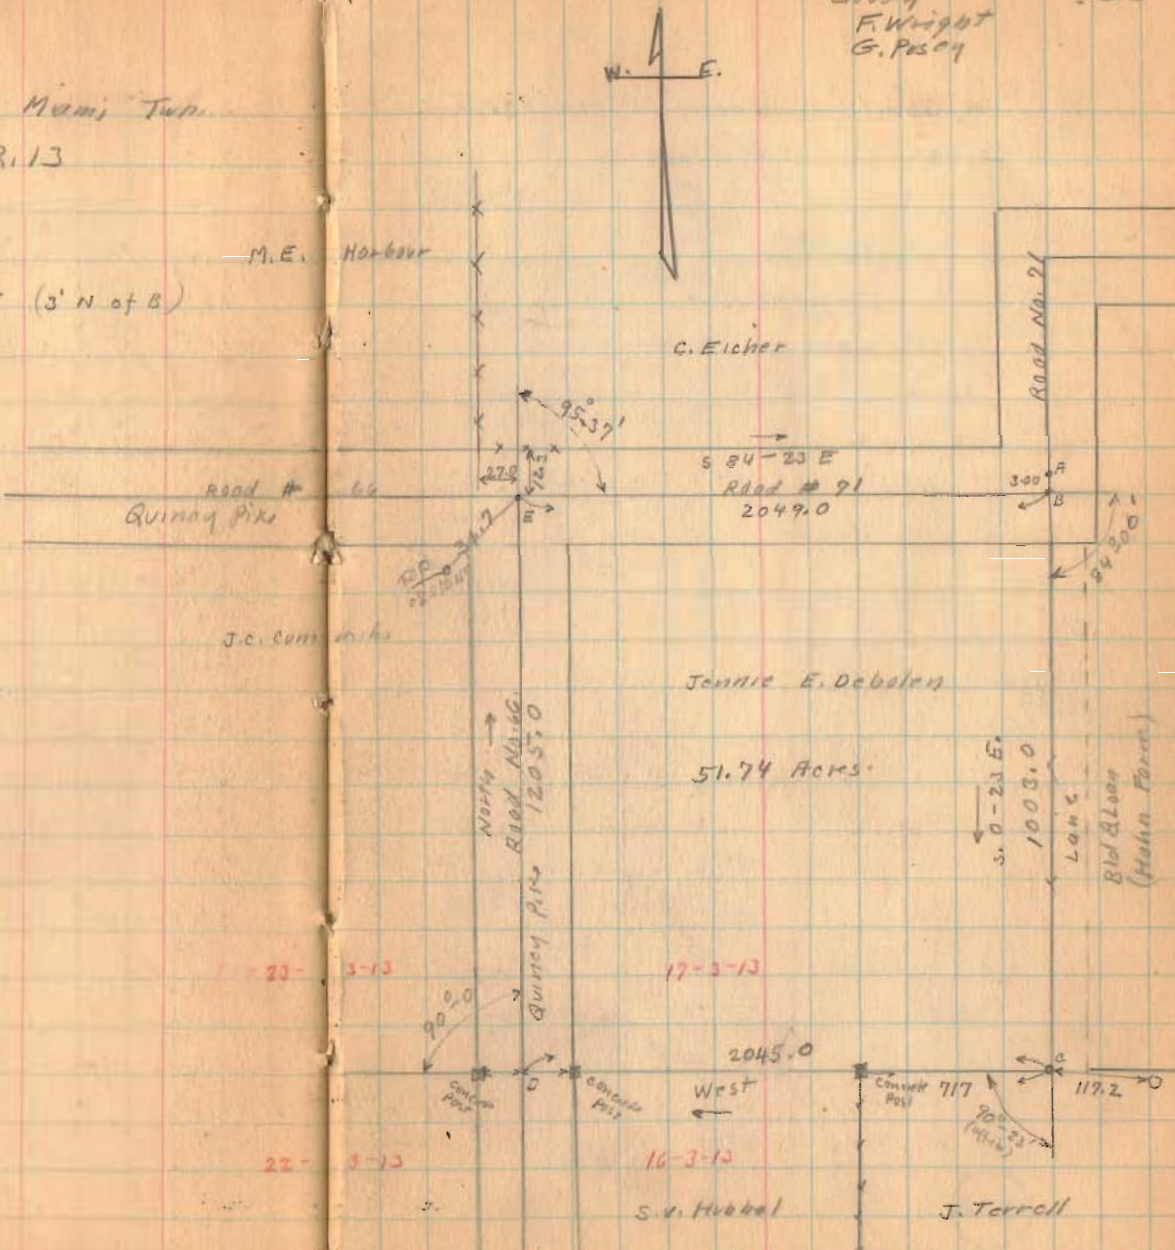 F. Wright
G. Posey
W. E.
Miami Twn.
R. 13
M.E. Harbour
(3' N of B)
C. Eicher
Road No. 71
95°-37'
27.0
12.5
S 84-23 E
Road # 71
2049.0
3.00
A
B
Road # 66
Quincy Pike
E
84° 00'
J.C.
Jennie E. Debolen
51.74 Acres.
North →
Road No. 66
Quincy Pike 1205.0
S. 0-23 E.
1003.0
Lane
Bld & Loan
(Hahn Farm)
23- 3-13
17-3-13
90°-0
2045.0
D
C
Concrete Post
Concrete Post
West
Concrete Post
717
117.2
90°-23'
22- 3-13
16-3-13
S.V. Hubbel
J. Terrell